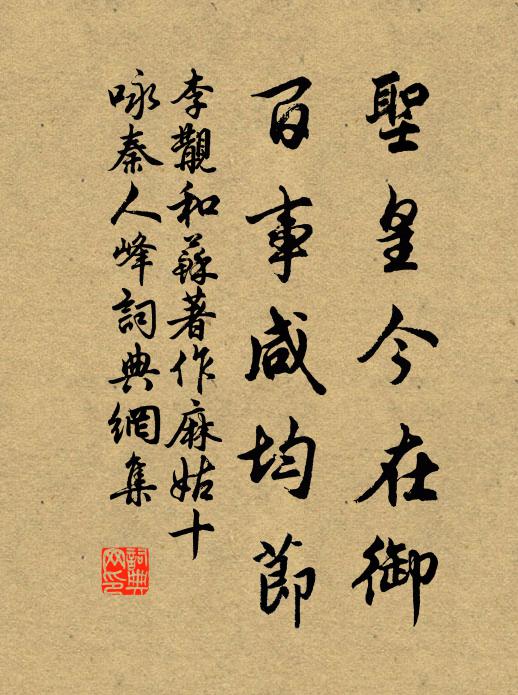 聖皇今在御
百事咸均節
李觀和蘇著作麻姑十
咏秦人峰詞典網集
詞典网印